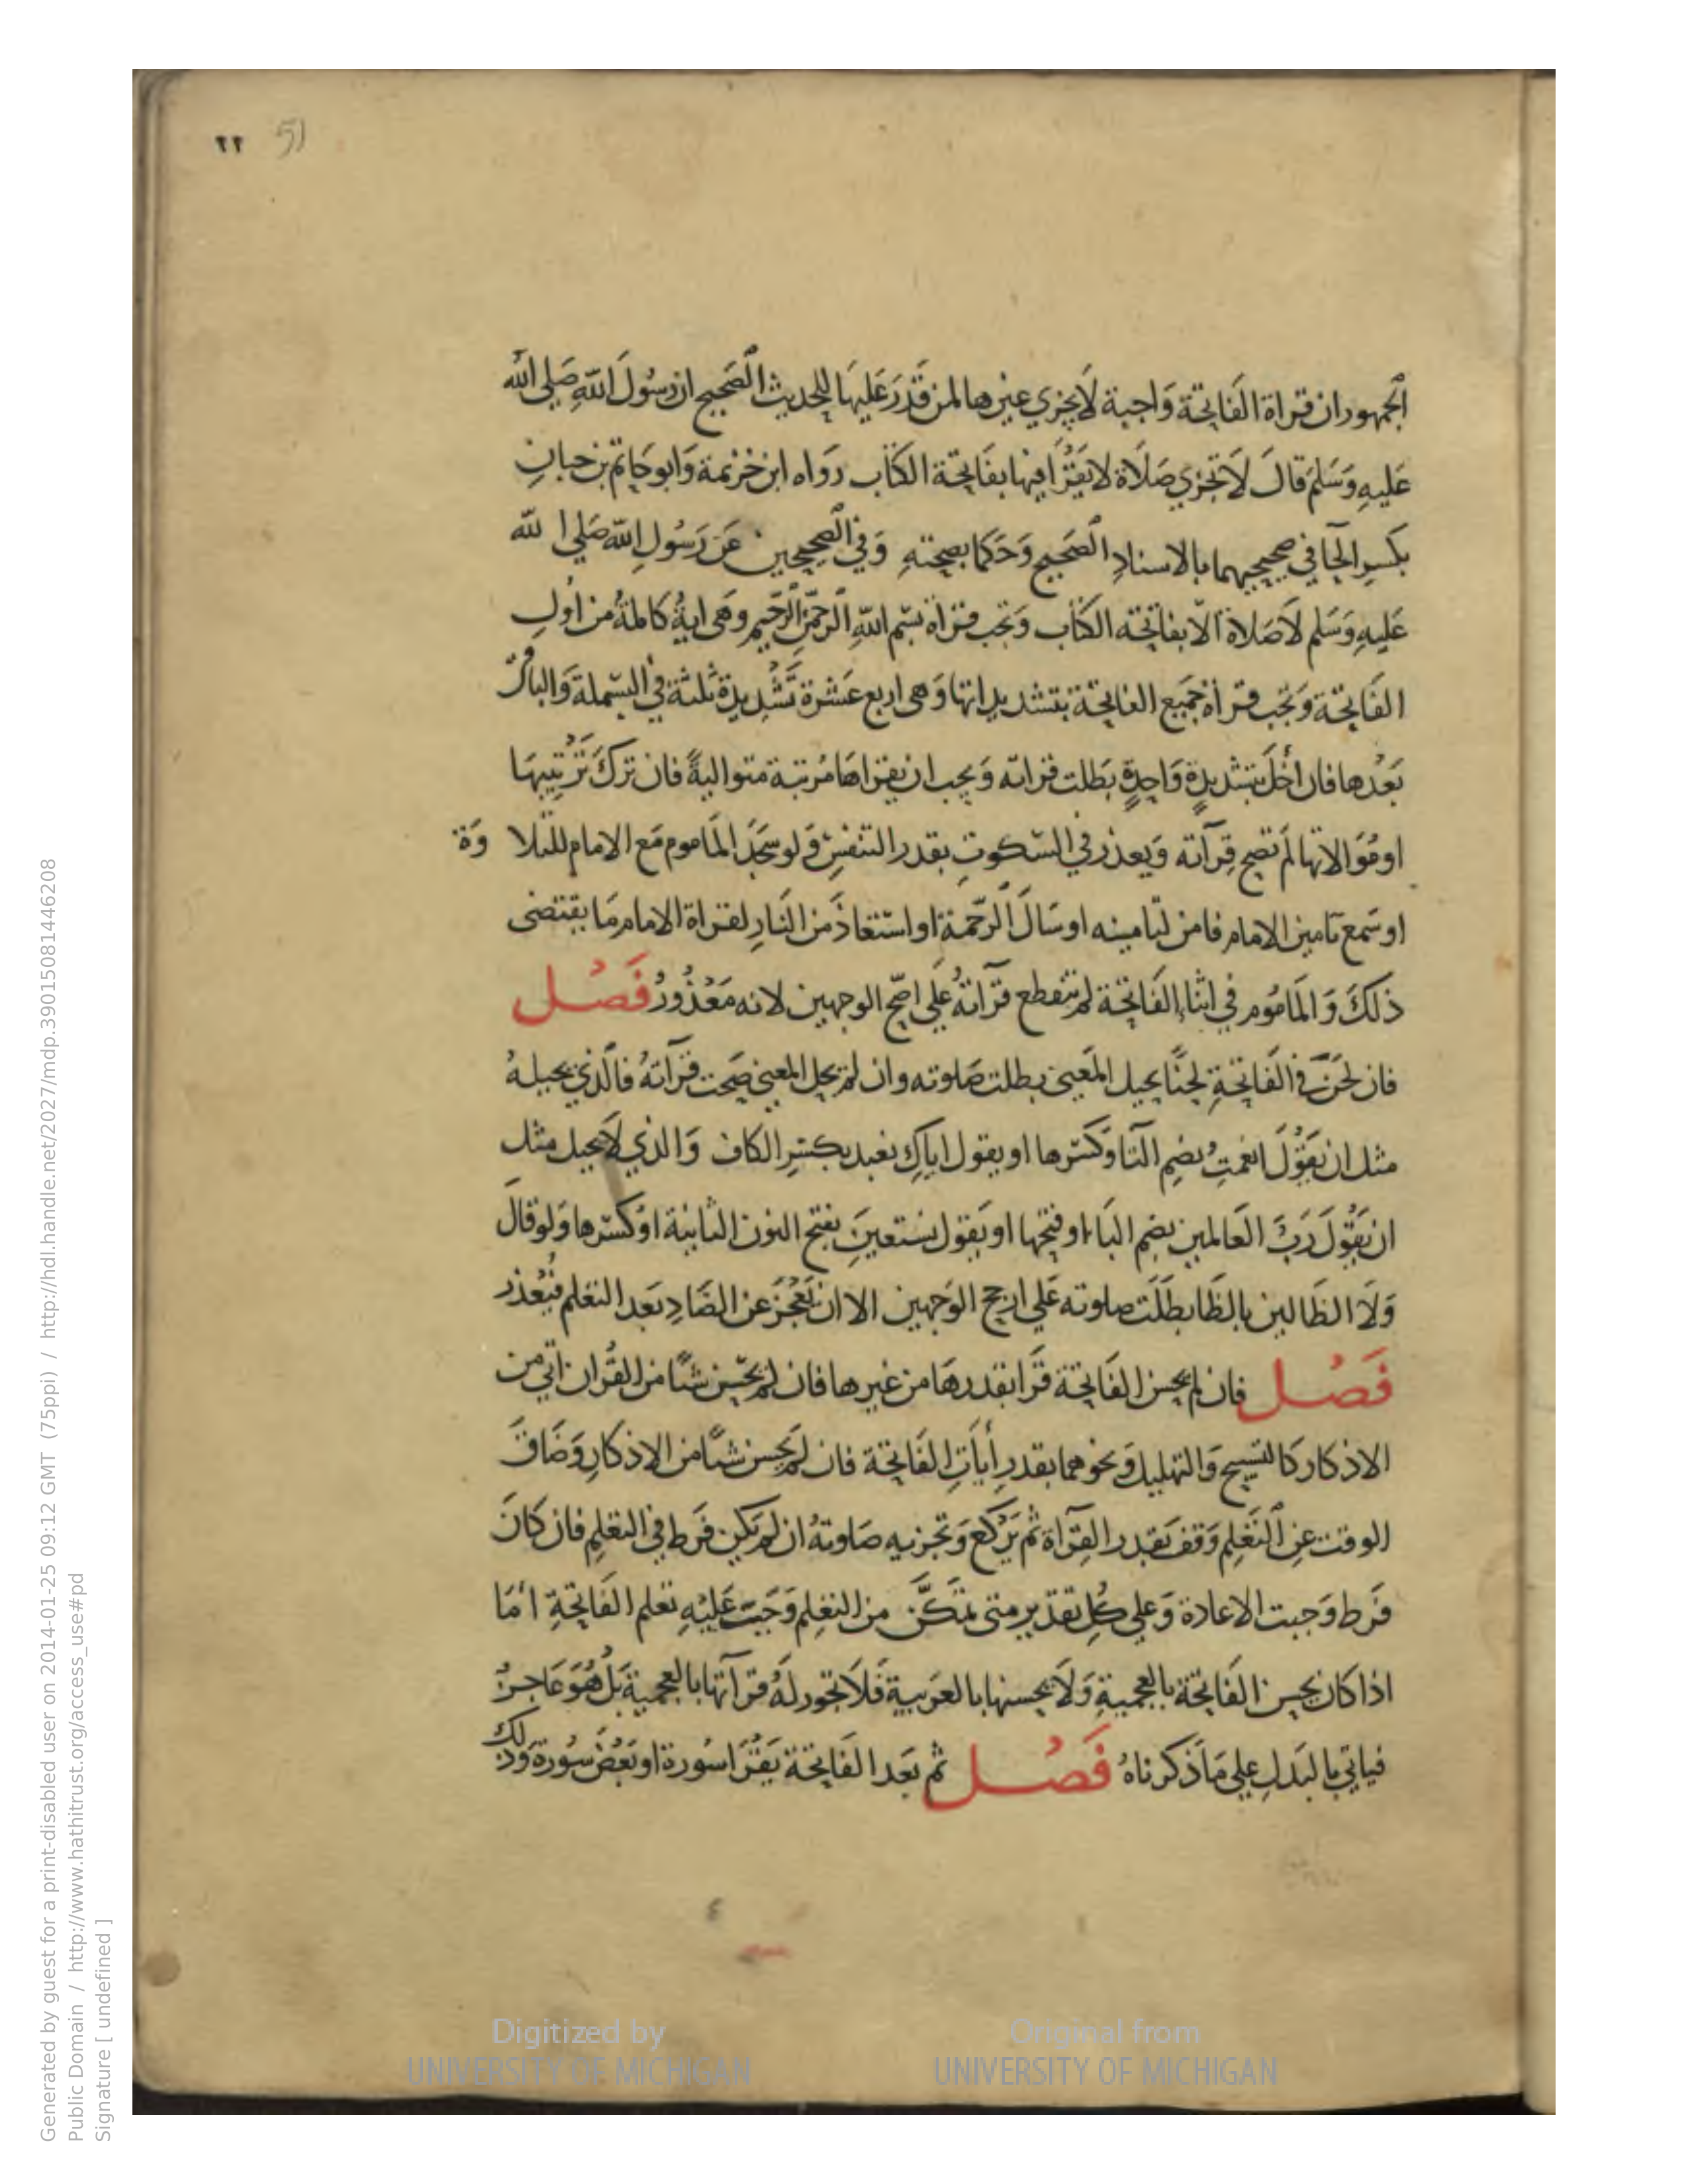 ٢٢ 51
الجمهور ان قراة الفَاتِحَة وَاجبة لَا يَجزي غيرها لمن قَدَرَ عَلَيهَا لِلحَديث الصَحيح ان رسُولَ اللّهِ صَلى الله
عَليهِ وَسَلمَ قالَ لَا تجزي صَلَاة لا يَقرَأ فيها بفَاتِحَة الكتَاب رَوَاه ابن خزيمة وَابو حَاتم بن حبانِ
بكسرِ الحَا في صحيحيهما بالاسنادِ الصَحيحِ وَحَكما بصِحتهِ وَفي الصَحيحين عَن رَسُولِ اللّه صَلي ا لله
عَليهِ وَسَلم لَا صَلاة الّا بفاتِحَة الكتاب وَتجب قراة بسْم اللّهِ الرحمَن الرَّحيمِ وهَي ايةُ كاملةُ من اولِ
الفَاتِحَة وَتجب قراة جَميَع الفاتِحَة بتشديداتها وَهى اربع عَشْرة تَشْدِيدة ثلثة في البسْملة وَالباقي
بَعْدها فان اخَل بتشديدةٍ وَاحِدةٍ بَطلت قراته وَيَجب ان يقراهَا مُرتبة متواليةً فان ترَكَ تَرْتِيبهَا
او مُوَالاتها لم تصح قِرآته وَيعذر في السّكوتِ بقدر التنفسِ وَ لو سَجَدَ المَاموم مَع الامام للتلا وَة
او سَمع تامين الامام فامن لتَامينه او سَال الرّحمة او اسْتعَاذَ من النَارِ لقراة الامام مَا يقتضى
ذلكَ وَ المَامُوم في اثنَاءِ الفَاتِحَة لم تنقطع قرآتهُ عَلى اصَحّ الوجهين لانه مَعْذُورُ فَصْل
فان لحَنَ في الفَاتِحَةِ لحنًا يحيل المَعنى بطلت صَلوته وان لم يحل المعنى صَحت قرآتهُ فالَّذي يحيلهُ
مثل ان يَقُوْلَ انعمتِ بضمِ التَا وَكسرها او يقول اياكِ نعبد بكسرِ الكاف وَالذي لَا يحيل مثل
ان يَقُولَ رَبَّ العَالمين بضم البَاءِ او فتحِها او يَقول نسْتعينَِ بفتح النون الثانية اوْ كسْرها وَلو قالَ
وَلَا الظَالين بالظَا بطلَتْ صلوته عَلي ارجح الوَجهين الا ان يَعْجَز عن الضَادِ بَعد التعلم فيُعْذر
فَصْل فان لم يحسن الفَاتِحَة قَرَا بقدرهَا من غيرها فان لم يحْسن شيًّا من القُران اتي من
الاذكار كَالتسبيح وَالتهليل وَنحوهما بقدر أيَاتِ الفَاتِحَة فان لم يحسن شيًّا من الاذكارِ وَضَاقَ
الوقت عنِ التَعلم وَقفَ بقدر القِرآة ثم يَرْكع وَتجزيه صَلوتهُ ان لم يَكن فَرط في التعلم فان كَانَ
فرط وَجبت الاعادة وَعلي كُلِ تقدير متى تمكَّن من التعلم وَجَبَ عَليْهِ تعلم الفَاتِحَةِ أمَّا
اذا كان يحسن الفَاتِحَة بالعجميةِ وَلَا يحسنها بالعَربيةِ فَلَا تجوز لَهُ قرآتها بالعجميةِ بَلْ هُوَ عَاجزُ
فياتي بالبَدلِ علي مَا ذكرناهُ فَصْل ثم بَعد الفَاتِحَة يَقْرَا سُورة او بَعْضَ سُورة وَذلك
٤
Digitized by
UNIVERSITY OF MICHIGAN
Original from
UNIVERSITY OF MICHIGAN
Generated by guest for a print-disabled user on 2014-01-25 09:12 GMT (75ppi) / http://hdl.handle.net/2027/mdp.39015081446208
Public Domain / http://www.hathitrust.org/access_use#pd
Signature [ undefined ]